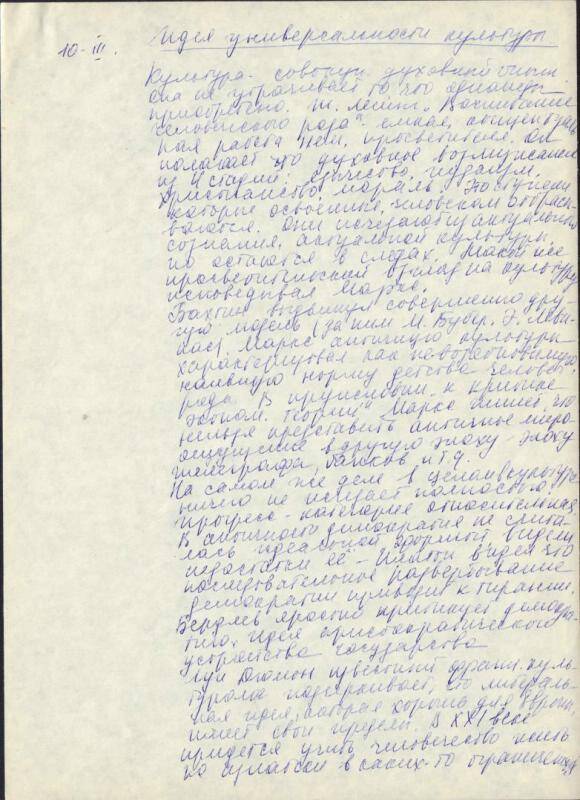 10-III. Идея универсальности культуры
Культура - совокупн. духовный опыт
она не утрачивает то что однажды
приобретено. Лессинг „Воспитание
человеческого рода" -
ная работа нем. просветителя. Он
полагает что духовное
из 4 стадий: язычество, иудаизм,
христианство, мораль. Но ступени
которые освоенные, человеком отбрасы-
ваются. Они исчезают из актуального
сознания, актуальной культуры,
но остаются в следах. Такой же
просветительский взгляд на культуру
исповедывал Маркс.
Бахтин выдвинул совершенно дру-
гую модель (за ним М. Бубер, Э. Леви-
нас) Маркс античную культуру
характеризовал как невозобновимую
наивную норму детства человеч.
рода. В предисловии „к критике
эконом. теорий" Маркс пишет, что
нельзя представить античное миро-
ощущение в другую эпоху - эпоху
телеграфа, банков и т.д.
На самом же деле в целом в культуре
ничего не исчезает полностью.
Прогресс - категория относительная
В античности демократия не счита-
лась идеальной формой, видели
недостатки её - Платон видел что
последовательное развертывание
демократии приводит к тирании.
Бердяев яростно критикует демокра-
тию, идея аристократического
устройства государства
Луи Дюмон известный франц. куль-
туролог подчеркивает, что либераль-
ная идея, которая хороша для Европы
имеет свои пределы. В XXI веке
придется учить человечество жить
по
в каких-то ограничениях